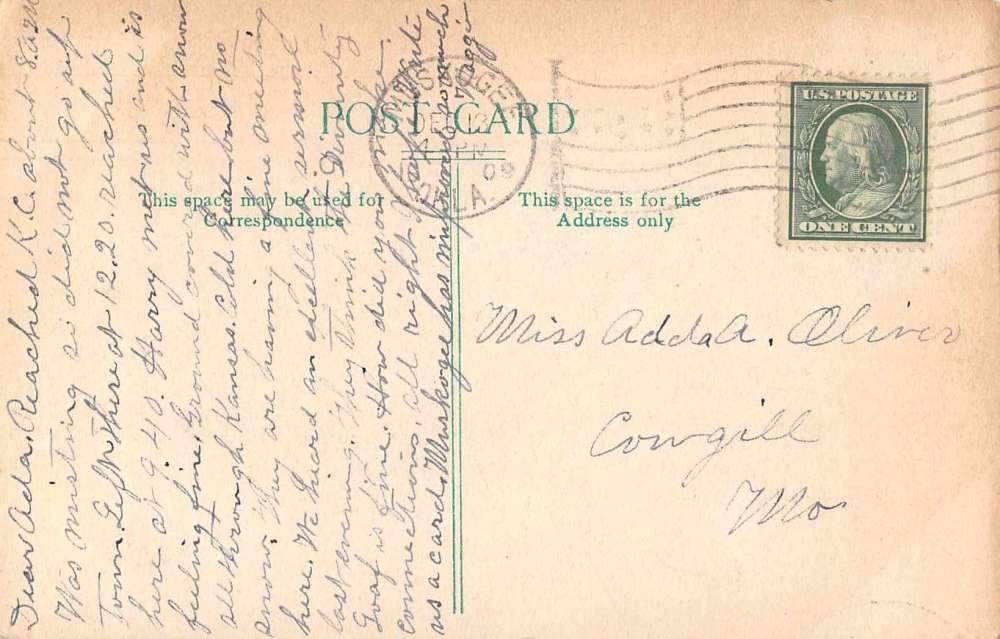 POST CARD
This space may be used for
Correspondence
This space is for the
Address only
U.S. POSTAGE
ONE CENT
MUSKOGEE
DEC 13
4 PM
09
OKLA.
Dear Ada. Reached K.C. about 8. a.m
Was misting so did not go up
town. Left there at 12.20. reached
here at 9.40. Harry met us and is
feeling fine. Ground covered with snow
all through Kansas. cold here but no
snow. They are having a fine meeting
here. We heard an excellent sermon
last evening. They think J. Dowdy
Goaf is fine. How did you make
connections, all right. Write
us a card. Muskogee has improved so much
Maggie
Miss Adda A. Oliver
Cowgill
Mo